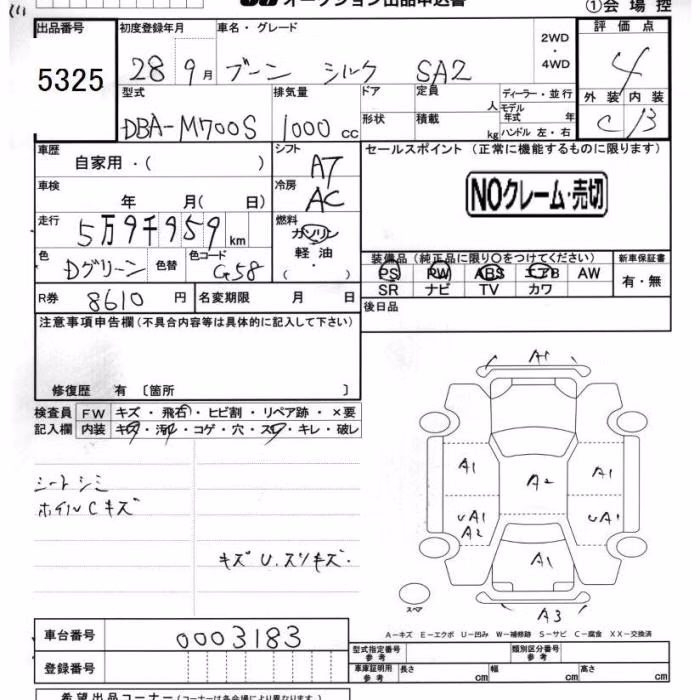 オークション出品申込書
①会場控
出品番号 初度登録年月 車名・グレード 2WD・4WD 評価点
5325 28 9月 ブーン シルク SA2 4
型式 排気量 ドア 定員 人 ディーラー・並行 外装 内装
DBA-M700S 1000cc 形状 積載 kg モデル年式 年 ハンドル 左・右 C B
車歴 シフト セールスポイント (正常に機能するものに限ります)
自家用・( ) AT
車検 年 月( 日) 冷房 AC
NOクレーム・売切
走行 5万9千959km 燃料 ガソリン
軽油
( ・ )
色 Dグリーン 色替 色コード G58
装備品 (純正品に限り○をつけてください) 新車保証書
PS PW ABS エアB AW 有・無
SR ナビ TV カワ
R券 8610円 名変期限 月 日
後日品
注意事項申告欄 (不具合内容等は具体的に記入して下さい)
修復歴 有 〔箇所 〕
検査員 FW キズ・飛石・ヒビ割・リペア跡・×要
記入欄 内装 キズ・汚れ・コゲ・穴・スレ・キレ・破レ
シートシミ
ホイルCキズ
キズU.スリキズ.
A1
A1 A2 A1
UA1 UA1
A2
A1
A3
スペア
A-キズ E-エクボ U-凹み W-補修跡 S-サビ C-腐食 XX-交換済
車台番号 0003183
型式指定番号 参考 類別区分番号 参考
登録番号
車庫証明用 参考 長さ cm 幅 cm 高さ cm
希望出品コーナー (コーナーは各会場により異なります。)